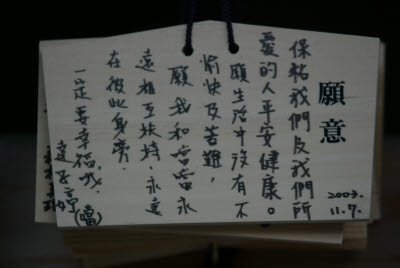 願意
保祐我們及我們所
愛的人平安健康。
願生活中沒有不
愉快及苦難,
願我和噹噹永
遠相互扶持,永遠
在彼此身旁.
一定要幸福哦.
(噹)
2003.
11.7.